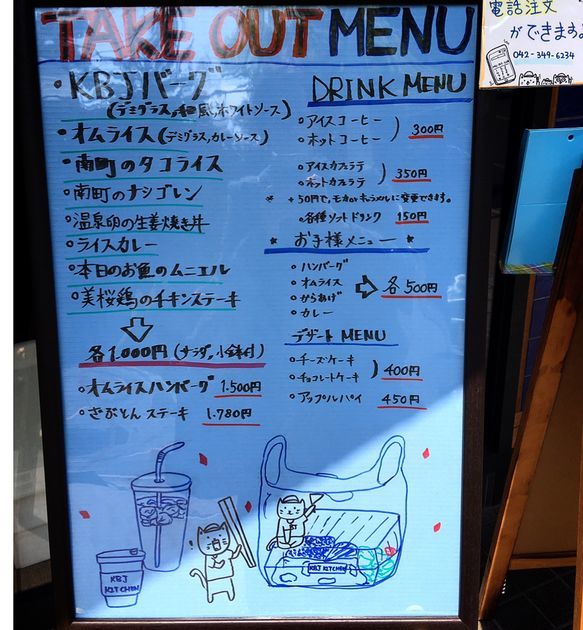 TAKE OUT MENU
・KBJバーグ
(デミグラス,和風,ホワイトソース)
・オムライス (デミグラス,カレーソース)
・南町のタコライス
・南町のナシゴレン
・温泉卵の生姜焼き丼
・ライスカレー
・本日のお魚のムニエル
・美桜鶏のチキンステーキ
各1.000円 (サラダ,小鉢付)
・オムライスハンバーグ 1.500円
・ざぶとんステーキ 1.780円
DRINK MENU
・アイスコーヒー
・ホットコーヒー
300円
・アイスカフェラテ
・ホットカフェラテ
350円
* +50円で、モカorキャラメルに変更できます。
・各種ソフトドリンク 150円
★お子様メニュー★
・ハンバーグ
・オムライス
・からあげ
・カレー
各500円
デザートMENU
・チーズケーキ
・チョコレートケーキ
400円
・アップルパイ 450円
KBJ
KITCHEN
KBJ KITCHEN
電話注文
ができます♪
042-349-6234